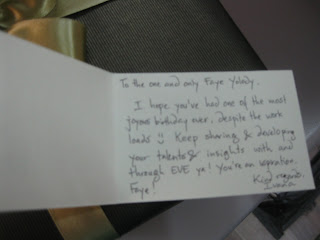 To the one and only Faye Yolody.
I hope you've had one of the most
joyous birthday ever, despite the work
loads :) Keep sharing & developing
your talents & insights with and
through EVE ya! You're an inspiration,
Faye!
Kind regards,